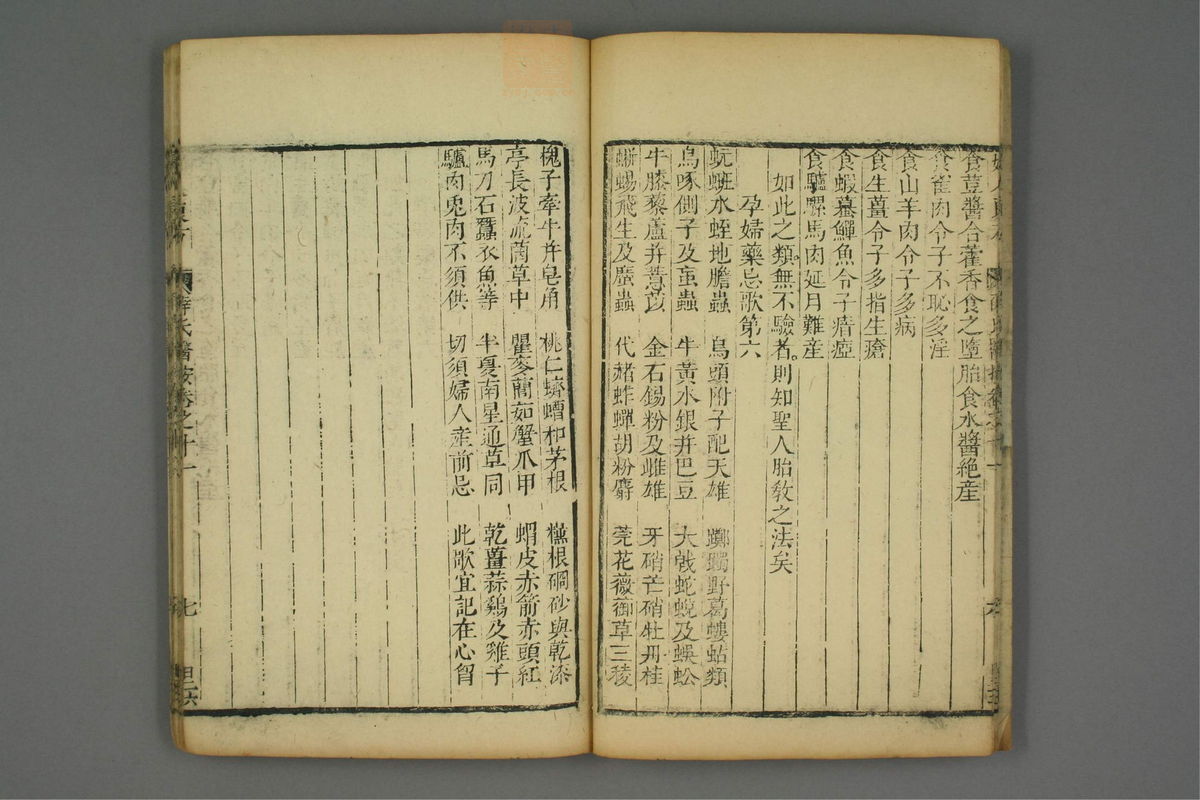 食荳醬合藿香食之墮胎食水醬絶産
食雀肉令子不恥多淫
食山羊肉令子多病
食生薑令子多指生瘡
食蝦蟇鱓魚令子瘖瘂
食驢騾馬肉延月難産
如此之類無不驗者。則知聖人胎敎之法矣
孕婦藥忌歌第六
蚖蜓水蛭地膽蟲 烏頭附子配天雄 躑躅野葛螻蛄類
烏啄側子及䖟蟲 牛黃水銀幷巴豆 大戟蛇蛻及蜈蚣
牛膝藜蘆幷薏苡 金石錫粉及雌雄 牙硝芒硝牡丹桂
蜥蜴飛生及䗪蟲 代赭蚱蟬胡粉麝 芫花薇蘅草三稜
槐子牽牛幷皂角 桃仁蠐螬和茅根 欓根硇砂與乾漆
亭長波流䓖草中 瞿麥䕡茹蟹爪甲 蝟皮赤箭赤頭紅
馬刀石蠶衣魚等 半夏南星通草同 乾薑蒜鷄及雞子
驢肉兎肉不須供 切須婦人産前忌 此歌宜記在心胷
薛氏醫按卷之
七